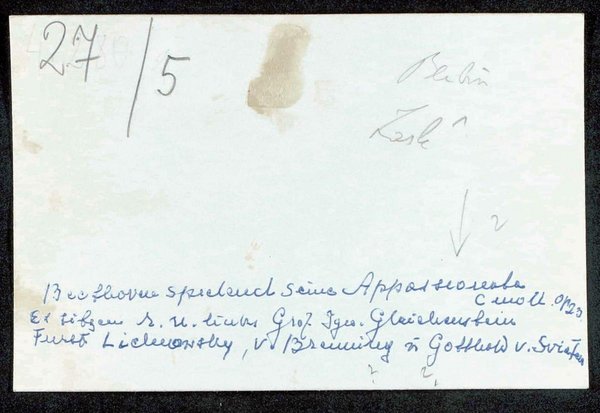 27/5
Beethoven spielend seine Appassionata
C moll op 23
Es sitzen r. u. links Graf Ign. Gleichenstein
Furst Lichnowsky, v. Breuning u Gottfried v. Swieten
? ?